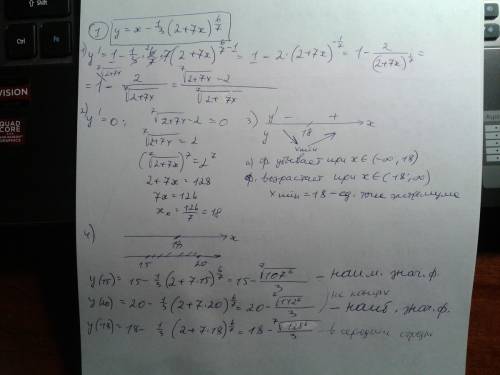 1 y = x - 1/3 (2+7x)^(6/7)
1) y' = 1 - 1/3 · 6/7 · 7 (2+7x)^(6/7 - 1) = 1 - 2·(2+7x)^(-1/7) = 1 - 2/(2+7x)^(1/7) =
= 1 - 2/⁷√(2+7x) = (⁷√(2+7x) - 2)/⁷√(2+7x)
2) y' = 0: ⁷√(2+7x) - 2 = 0
⁷√(2+7x) = 2
(⁷√(2+7x))⁷ = 2⁷
2+7x = 128
7x = 126
x₀ = 126/7 = 18
3) y' - + x
y 18
xmin
а) ф. убывает при x ∈ (-∞, 18)
ф. возрастает при x ∈ (18; ∞)
x min = 18 - ед. точка экстремума
4) 18 x
15 20
y(15) = 15 - 1/3 (2+7·15)^(6/7) = 15 - ⁷√107⁶/3 - наим. знач. ф.
на концах
y(20) = 20 - 1/3 (2+7·20)^(6/7) = 20 - ⁷√142⁶/3 - наиб. знач. ф.
y(18) = 18 - 1/3 (2+7·18)^(6/7) = 18 - ⁷√128⁶/3 - в середине
QUAD
CORE